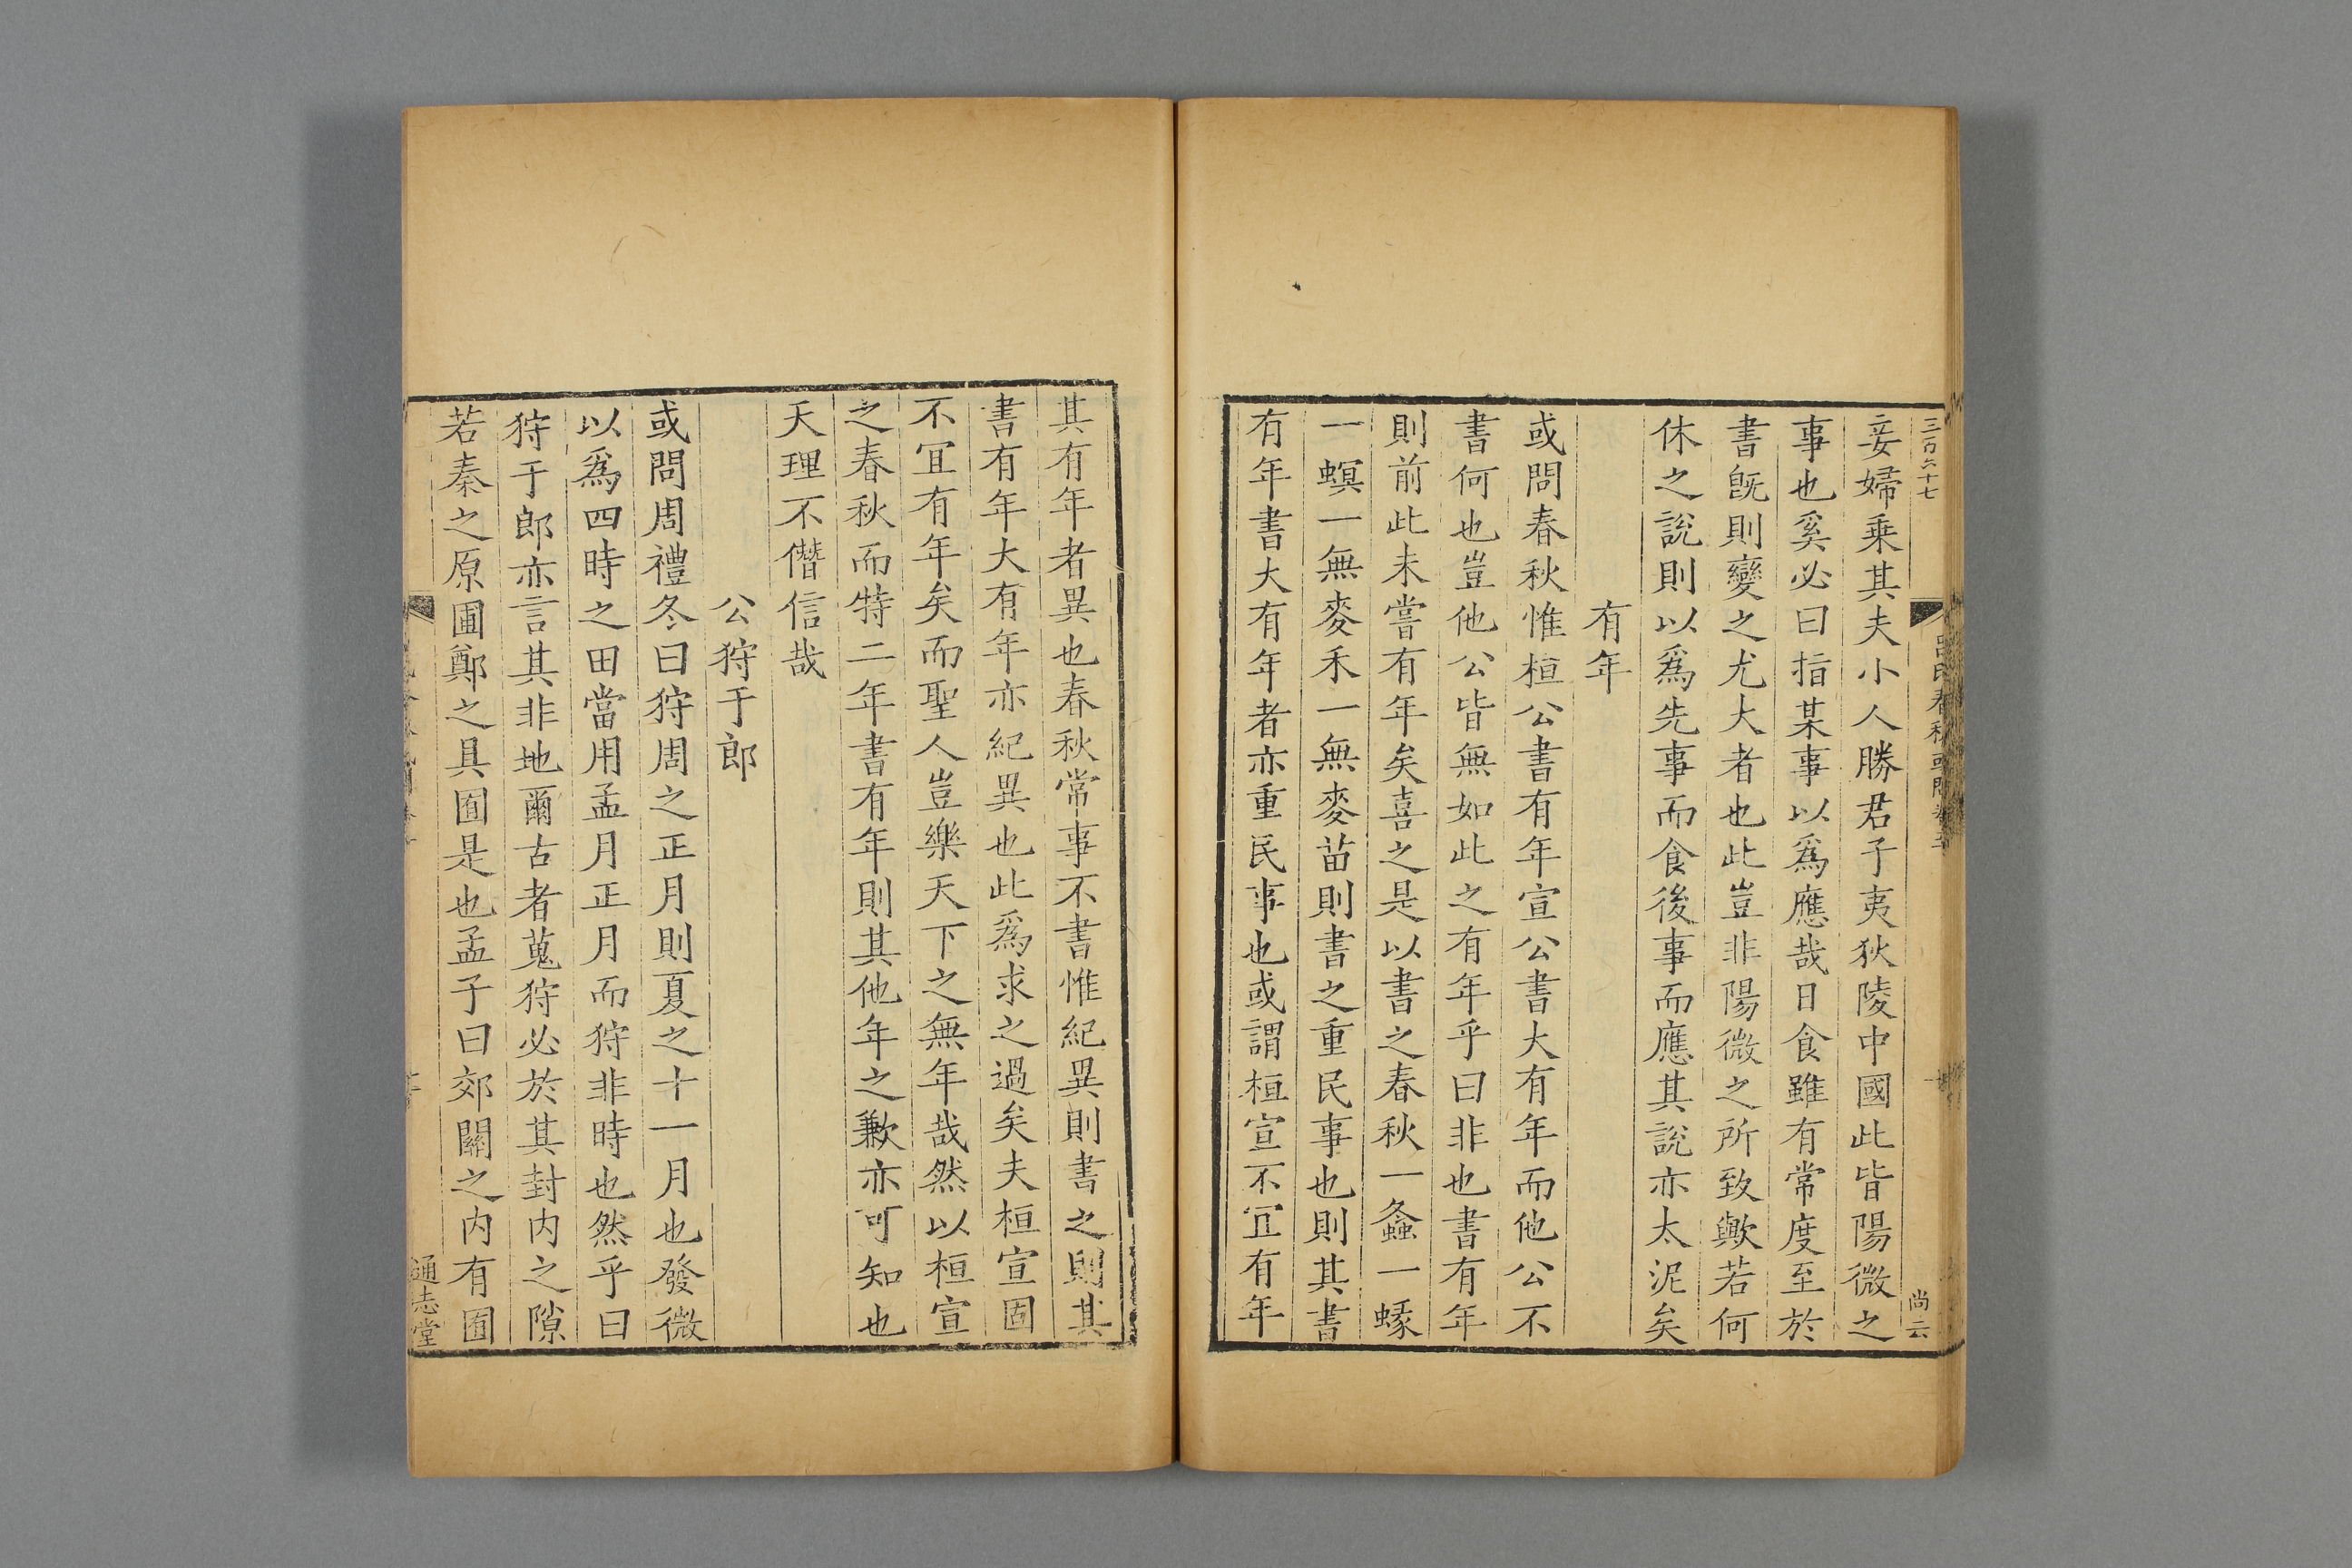 三百六十七
尚云
妾婦乗其夫小人勝君子夷狄陵中國此皆陽微之
事也奚必曰指某事以爲應哉日食雖有常度至於
書旣則變之尤大者也此豈非陽微之所致歟若何
休之說則以爲先事而食後事而應其說亦太泥矣
有年
或問春秋惟桓公書有年宣公書大有年而他公不
書何也豈他公皆無如此之有年乎曰非也書有年
則前此未嘗有年矣喜之是以書之春秋一螽一蝝
一螟一無麥禾一無麥苗則書之重民事也則其書
有年書大有年者亦重民事也或謂桓宣不冝有年
其有年者異也春秋常事不書惟紀異則書之則其
書有年大有年亦紀異也此爲求之過矣夫桓宣固
不冝有年矣而聖人豈樂天下之無年哉然以桓宣
之春秋而特二年書有年則其他年之歉亦可知也
天理不僭信哉
公狩于郎
或問周禮冬曰狩周之正月則夏之十一月也發微
以爲四時之田當用孟月正月而狩非時也然乎曰
狩于郎亦言其非地爾古者蒐狩必於其封内之隙
若秦之原圃鄭之具囿是也孟子曰郊關之内有囿
通志堂